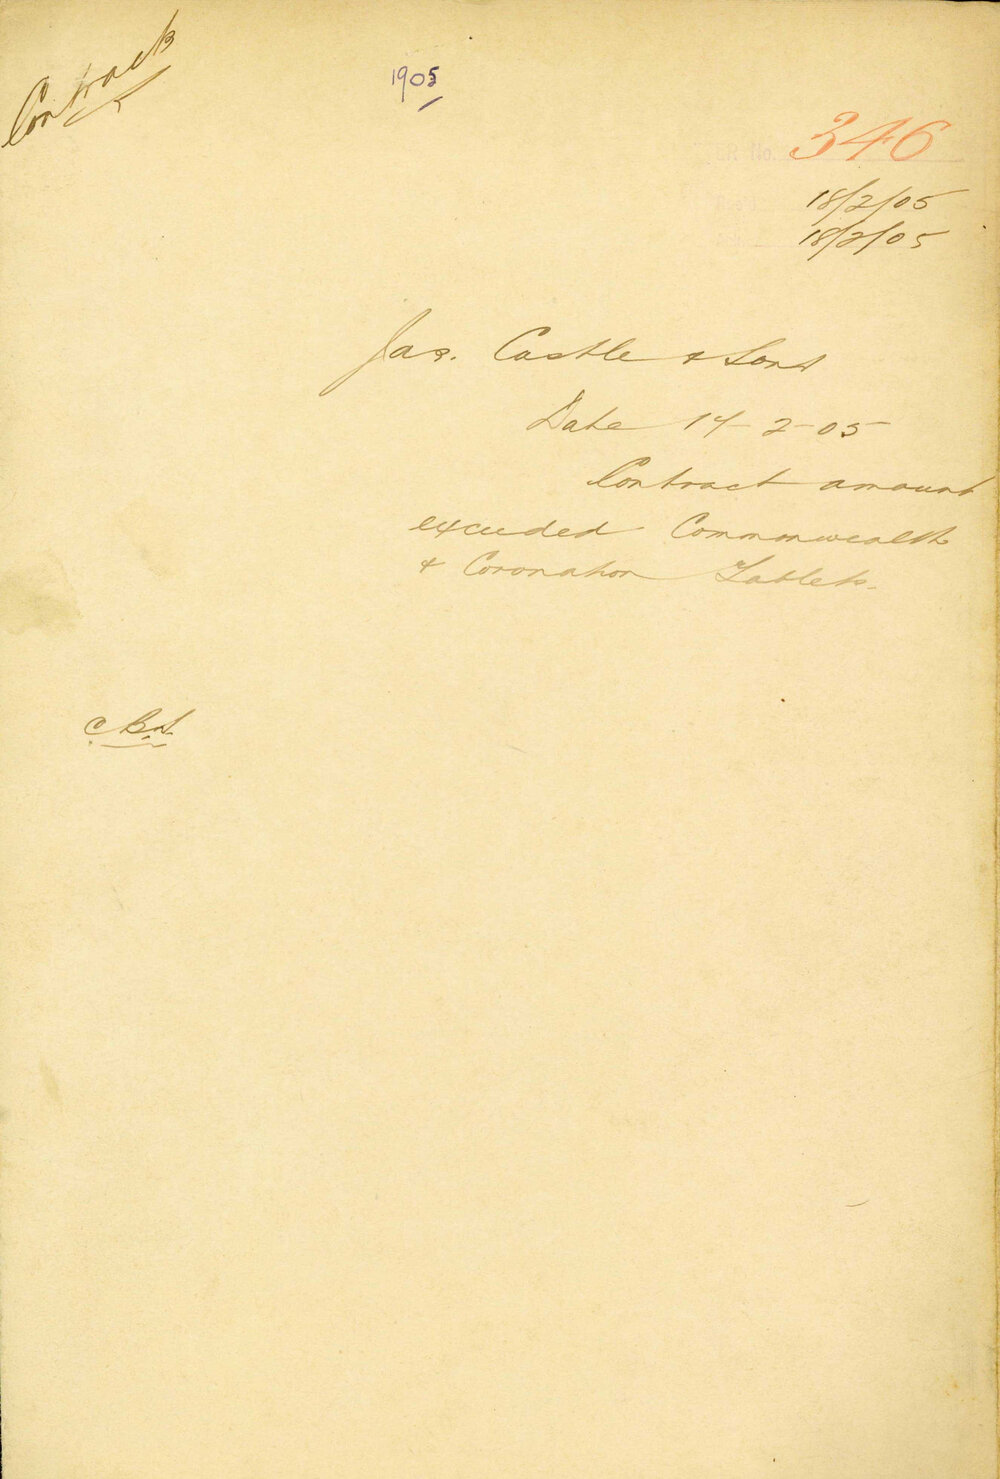 Contracts
1905
346
18/2/05
18/2/05
Jas. Castle & Sons
Date 17-2-05
Contract amount
exceeded Commonwealth
& Coronation Tablets.